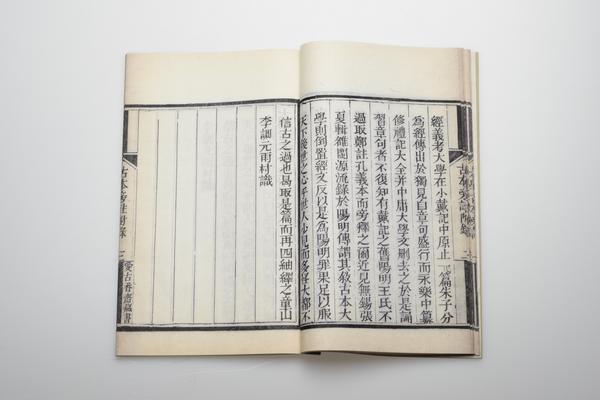 經義考大學在小戴記中原止一篇朱子分
為經傳出於獨見自章句盛行而永樂中纂
修禮記大全并中庸大學文刪去之於是誦
習章句者不復知有戴記之舊陽明王氏不
過取鄭註孔義本而旁釋之爾近見無錫張
夏輯雒閩源流錄於陽明傳謂其斆古本大
學則倒置經文反以是為陽明罪果足以服
天下後世之心乎世人少見而多怪大都不
信古之過也曷取是篇而再四紬繹之童山
李調元雨村識